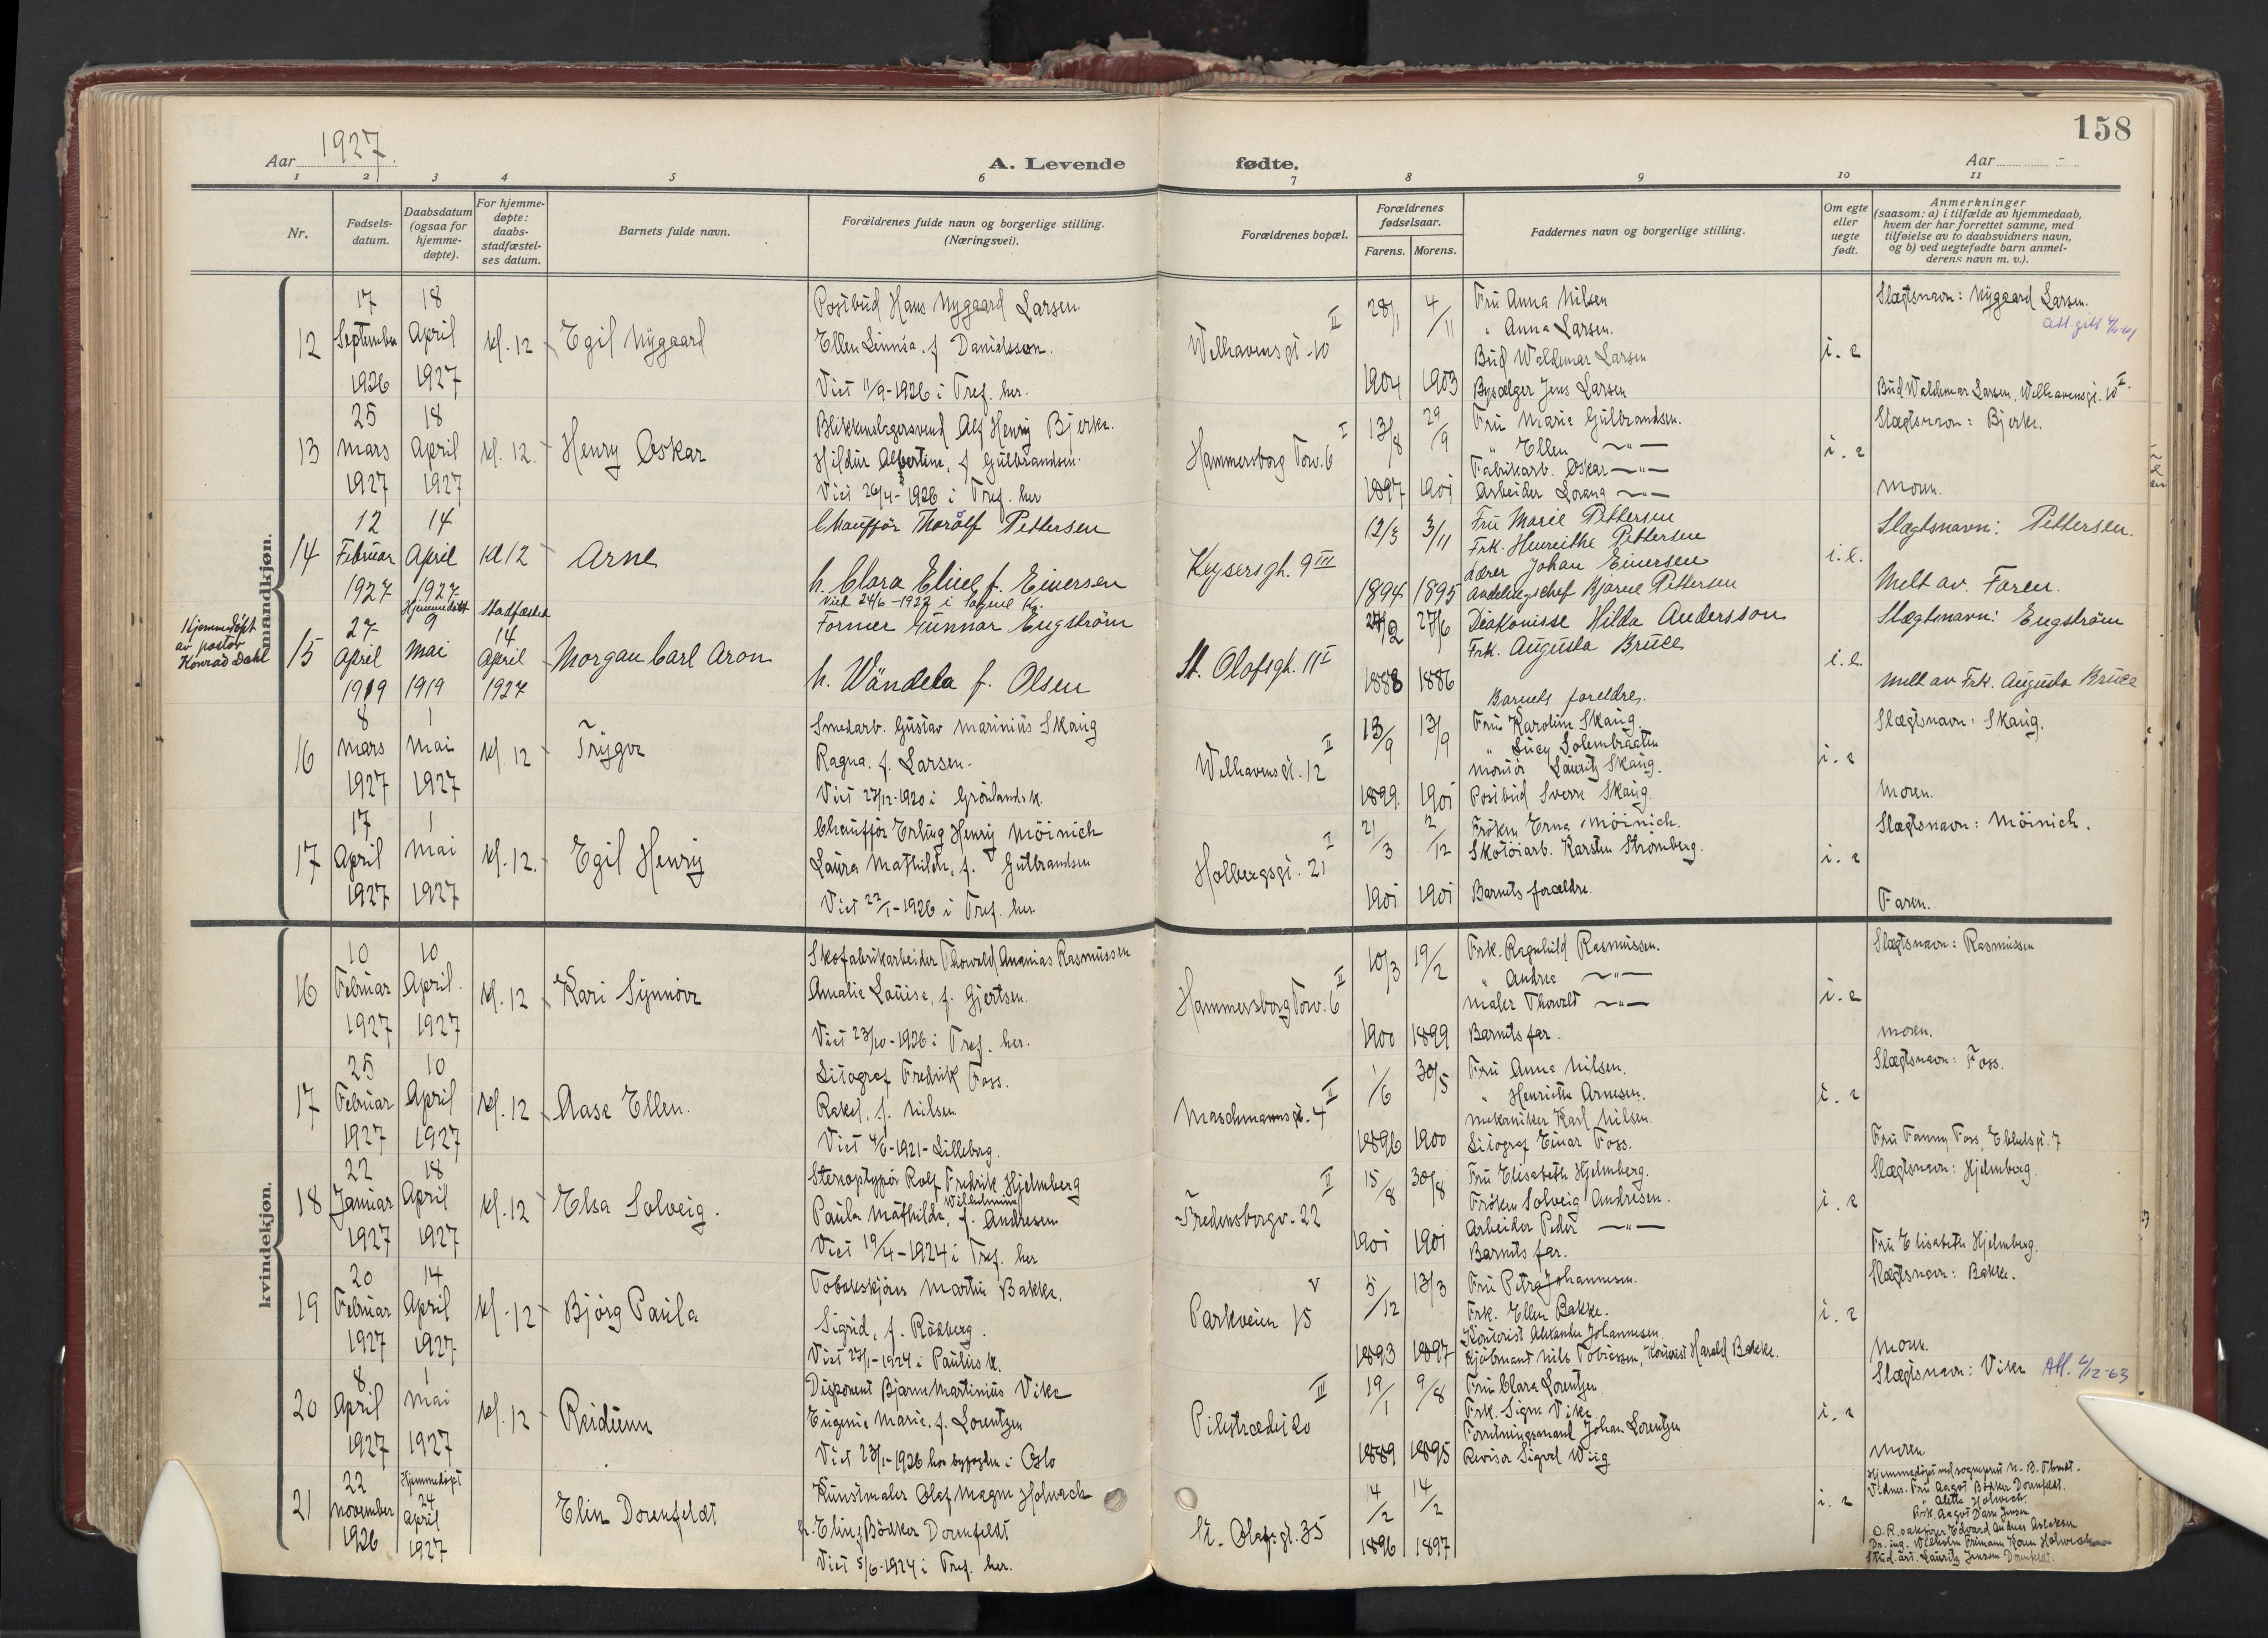 158
Aar 1927.
A. Levende fødte.
Aar
1 2 3 4 5 6 7 8 9 10 11
Nr.
Fødsels-
datum.
Daabsdatum
(ogsaa for
hjemme-
døpte).
For hjemme-
døpte:
daabs-
stadfæstel-
ses datum.
Barnets fulde navn.
Forældrenes fulde navn og borgerlige stilling.
(Næringsvei).
Forældrenes bopæl.
Forældrenes
fødselsaar.
Farens. Morens.
Faddernes navn og borgerlige stilling.
Om egte
eller
uegte
født.
Anmerkninger
(saasom: a) i tilfælde av hjemmedaab,
hvem der har forrettet samme, med
tilføielse av to daabsvidners navn,
og b) ved uegtefødte barn anmel-
derens navn m. v.).
mandkjøn.
12
17
September
1926
18
April
1927
kl. 12
Egil Nygaard
Postbud Hans Nygaard Larsen.
Ellen Linnéa. f. Danielsson.
Viet 11/9-1926 i Tref. her.
Welhavensgt. 10 II
28/1
1904
4/11
1903
Fru Anna Nilsen
" Anna Larsen.
Bud Waldemar Larsen
Bysælger Jens Larsen
i. e
Slægtsnavn: Nygaard Larsen.
Bud Waldemar Larsen, Welhavensgt. 10 II.
13
25
Mars
1927
18
April
1927
kl. 12.
Henry Oskar
Blikkenslagersvend Alf Henry Bjerke.
Hildur Albertine, f. Gulbrandsen.
Viet 26/4-1926 i Tref. her
Hammersborg Torv. 6 I
13/8
1897
29/9
1901
Fru Marie Gulbrandsen.
" Ellen —"—
Fabrikarb. Oskar —"—
Arbeider Lorang —"—
i. e
Slægtsnavn: Bjerke.
Moren.
14
12
Februar
1927
14
April
1927
kl 12
Arne
Chauffør Thorolf Pettersen
h. Clara Eline f. Einersen
Viet 24/6-1922 i Sagene K.
Keysersgt. 9 III
12/3
1894
3/11
1895
Fru Marie Pettersen
Frk. Henriette Pettersen
Lærer Johan Einersen
Avdelingschef Bjarne Pettersen
i. e.
Slægtsnavn: Pettersen.
Melt av. Faren.
Hjemmedøpt
av pastor
Konrad Dahl
15
27
April
1919
Hjemmedøbt
9
Mai
1919
Stadfæstet
14
April
1927
Morgan Carl Aron
Former Gunnar Engström
h. Wändela f. Olsen
St. Olafsgt. 11 I
24/2
1888
27/6
1886
Diakonisse Hilda Andersson
Frk. Augusta Bruce
Barnets foreldre.
i. e.
Slægtsnavn: Engström
Melt av Frk. Augusta Bruce
16
8
Mars
1927
1
Mai
1927
kl. 12
Trygve
Smedarb. Gustav Marinius Skaug
Ragna. f. Larsen.
Viet 27/12-1920 i Grønlands k.
Welhavensgt. 12 II
13/9
1899.
13/9
1901
Fru Karoline Skaug.
" Lucy Solembraaten
Montør Lauritz Skaug.
Postbud Sverre Skaug.
i. e
Slægtsnavn: Skaug.
Moren.
17
17
April
1927
1
Mai
1927
kl. 12.
Egil Henry
Chauffør Erling Henry Möinich
Laura Mathilde, f. Gulbrandsen
Viet 22/1-1926 i Tref. her
Holbergsgt. 21 I
21/3
1901
2/12
1901
Frøken Erna Möinich.
Skotøiarb. Karsten Strømberg.
Barnets forældre.
i. e
Slægtsnavn: Möinich.
Faren.
kvindekjøn.
16
10
Februar
1927
10
April.
1927
kl. 12
Kari Synnøve
Skofabrikarbeider Thorvald Ananias Rasmussen
Amalie Louise, f. Gjertsen.
Viet 23/10-1926 i Tref. her.
Hammersborg Torv. 6 II
10/3
1900
19/2
1899
Frk. Ragnhild Rasmussen.
" Andrea —"—
Maler Thorvald —"—
Barnets far.
i. e
Slægtsnavn: Rasmussen
Moren.
17
25
Februar
1927
10
April
1927
kl. 12
Aase Ellen.
Litograf Fredrik Foss.
Rakel. f. Nilsen
Viet 4/6-1921-Lilleborg.
Maschmannsgt. 4 II
1/6
1896
30/5
1900
Fru Anna Nilsen.
" Henriette Arnesen.
Mekaniker Karl Nilsen.
Litograf Einar Foss.
i. e
Slægtsnavn: Foss.
Fru Fanny Foss, Ebbelsgt. 7
18
22
Januar
1927
18
April
1927
kl. 12
Elsa Solveig.
Stereotypør Rolf Fredrik Hjelmberg
Paula Mathilde Wilhelmine, f. Andresen
Viet 19/4-1924 i Tref. her
Fredensborgv. 22 II
15/8
1901
30/8
1901
Fru Elisabeth Hjelmberg.
Frøken Solveig Andresen.
Arbeider Peder —"—
Barnets far.
i. e
Slægtsnavn: Hjelmberg.
Fru Elisabeth Hjelmberg.
19
20
Februar
1927
14
April
1927
kl. 12
Bjørg Paula
Tobakskjører Martin Bakke.
Sigrid, f. Rödberg.
Viet 27/1-1924 i Paulus k.
Parkveien 15 V
5/12
1893
13/3
1897
Fru Petra Johannesen.
Frk. Ellen Bakke.
Kontorist Alexander Johannesen.
Kjøbmand Nils Tobiassen, Kontorist Harald Bakke.
i. e
Slægtsnavn: Bakke.
Moren.
20
8
April
1927
1
Mai
1927
kl. 12
Reidunn
Disponent Bjarne Martinius Vike
Eugenie Marie. f. Lorentzen
Viet 23/1-1926 hos byfogden i Oslo
Pilestrædet 20 III
19/1
1889
9/8
1895
Fru Clara Lorentzen.
Frk. Signe Vike
Forretningsmand Johan Lorentzen
Revisor Sigvel Wiig
i. e
Slægtsnavn: Vike Att. 4/12-63
Moren
21
22
November
1926
Hjemmedøpt
24
April
1927
Elin Dorenfeldt
Kunstmaler Olaf Magne Holwech
h. Elin, Bødker Dorenfeldt
Viet 5/6-1924 i Tref. her.
St. Olafsgt. 35
14/2
1896
14/2
1897
i. e
Hjemmedøpt ved sogneprest N. B. Thvedt.
Vidner. Fru Aagot Bødker Dorenfeldt.
" Aletta Holwech.
Frk. Aagot Jensen
O. R. sakfører Edvard Andreas Aslaksen
Stud. art. Lauritz Jenssen Dorenfeldt.